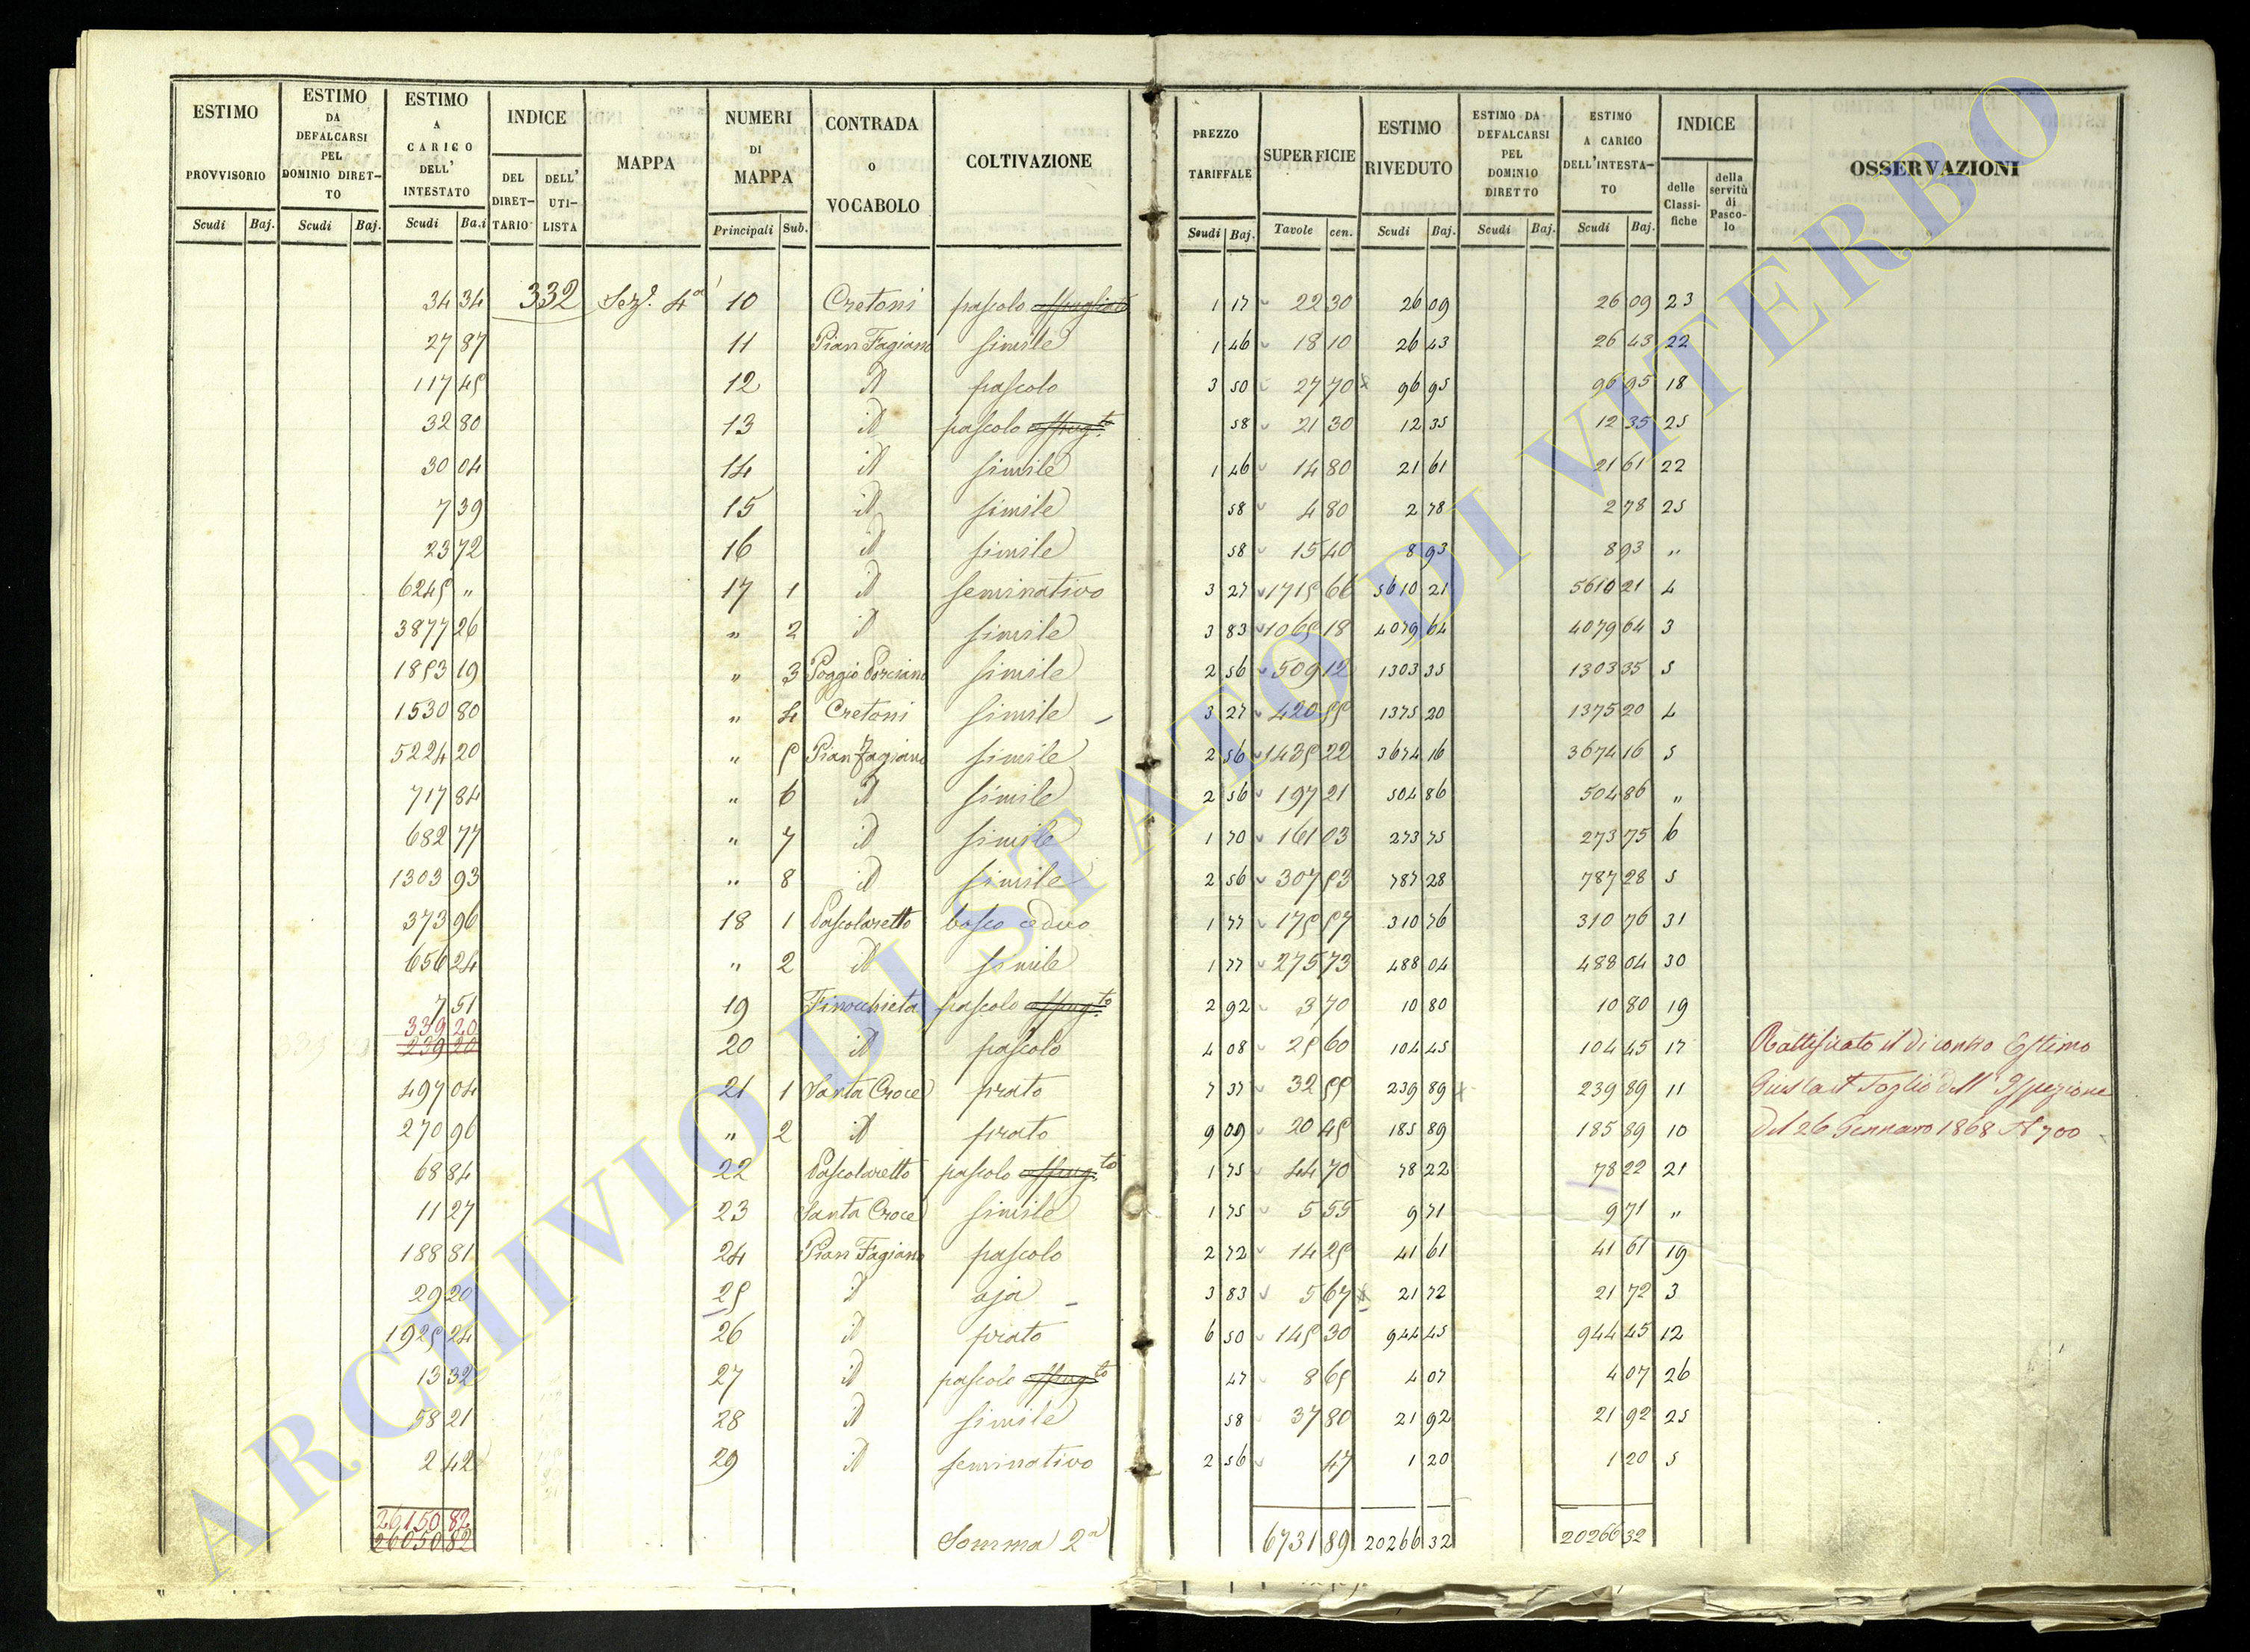 ESTIMO PROVVISORIO
Scudi Baj.
ESTIMO DA DEFALCARSI PEL DOMINIO DIRET-TO
Scudi Baj.
ESTIMO A CARICO DELL' INTESTATO
Scudi Ba.i
INDICE
DEL DIRET-TARIO
DELL' UTI-LISTA
MAPPA
NUMERI DI MAPPA
Principali Sub.
CONTRADA o VOCABOLO
COLTIVAZIONE
PREZZO TARIFFALE
Scudi Baj.
SUPERFICIE
Tavole cen.
ESTIMO RIVEDUTO
Scudi Baj.
ESTIMO DA DEFALCARSI PEL DOMINIO DIRETTO
Scudi Baj.
ESTIMO A CARICO DELL'INTESTA-TO
Scudi Baj.
INDICE
delle Classi-fiche
della servitù di Pasco-lo
OSSERVAZIONI
34 34 332 Sez.e 4a 10 Cretoni pascolo 1 17 22 30 26 09 26 09 23
27 87 11 Pian Fagiano simile 1 46 18 10 26 43 26 43 22
117 45 12 id pascolo 3 50 27 70 96 95 96 95 18
32 80 13 id pascolo 58 21 30 12 35 12 35 25
30 04 14 id simile 1 46 14 80 21 61 21 61 22
7 39 15 id simile 58 4 80 2 78 2 78 25
23 72 16 id simile 58 15 40 8 93 8 93 "
6245 " 17 1 id seminativo 3 27 1715 66 5610 21 5610 21 4
3877 26 " 2 id simile 3 83 1065 18 4079 64 4079 64 3
1853 19 " 3 Poggio Porciano simile 2 56 509 12 1303 35 1303 35 5
1530 80 " 4 Cretoni simile 3 27 420 55 1375 20 1375 20 4
5224 20 " 5 Pian Fagiano simile 2 56 1435 22 3674 16 3674 16 5
717 84 " 6 id simile 2 56 197 21 504 86 504 86 "
682 77 " 7 id simile 1 70 161 03 273 75 273 75 6
1303 93 " 8 id simile 2 56 307 53 787 28 787 28 5
373 96 18 1 Pascolaretto bosco ceduo 1 77 175 57 310 76 310 76 31
656 24 " 2 id simile 1 77 275 73 488 04 488 04 30
7 51 19 Finocchieta pascolo 2 92 3 70 10 80 10 80 19
339 20
239 20 20 id pascolo 4 08 25 60 104 45 104 45 17 Rattificato il di contro Estimo
497 04 21 1 Santa Croce prato 7 37 32 55 239 89 239 89 11 Giusta il Foglio dell' Ispezione
270 96 " 2 id prato 9 09 20 45 185 89 185 89 10 del 26 Gennaro 1868 N 700
68 84 22 Pascolaretto pascolo 1 75 44 70 78 22 78 22 21
11 27 23 Santa Croce simile 1 75 5 55 9 71 9 71 "
188 81 24 Pian Fagiano pascolo 2 72 14 25 41 61 41 61 19
29 20 25 id aja 3 83 5 67 21 72 21 72 3
1925 24 26 id prato 6 50 145 30 944 45 944 45 12
13 32 27 id pascolo 47 8 65 4 07 4 07 26
58 21 28 id simile 58 37 80 21 92 21 92 25
2 42 29 id seminativo 2 56 47 1 20 1 20 5
26150 82
26050 82 Somma 2a 6731 89 20266 32 20266 32
ARCHIVIO DI STATO DI VITERBO